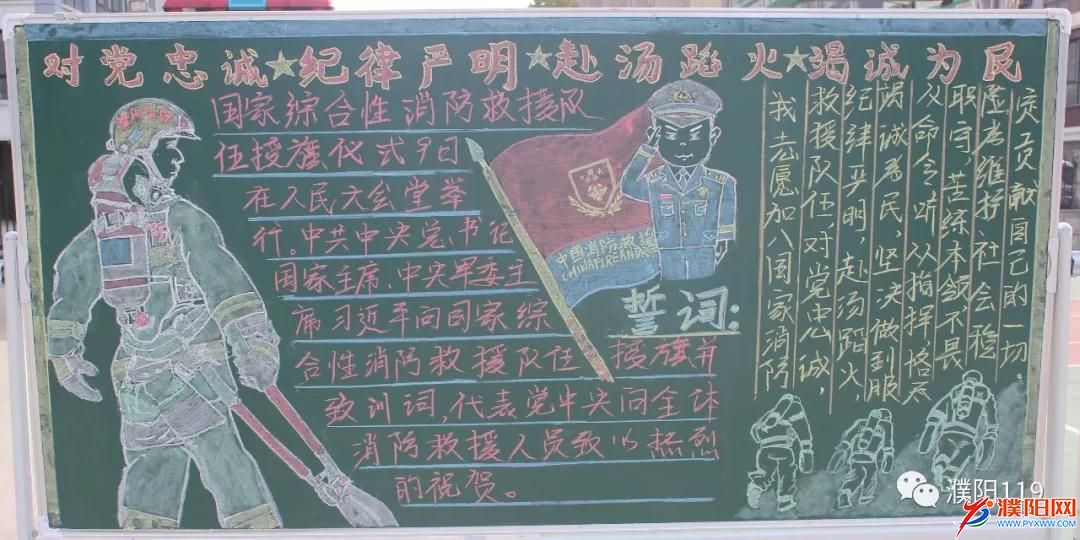 对党忠诚★纪律严明★赴汤蹈火★竭诚为民
国家综合性消防救援队
伍授旗仪式9日
在人民大会堂举
行。中共中央总书记
国家主席、中央军委主
席习近平向国家综
合性消防救援队伍授旗并
致训词,代表党中央向全体
消防救援人员致以热烈
的祝贺。
中国消防救援
CHINAFIREANDRE
誓词:
我志愿加入国家消防
救援队伍,对党忠诚,
纪律严明,赴汤蹈火,
竭诚为民,坚决做到服
从命令听从指挥,恪尽
职守,苦练本领不畏
险为维护社会稳
定贡献自己的一切.
濮阳119
濮阳网
WWW.PYXWW.COM